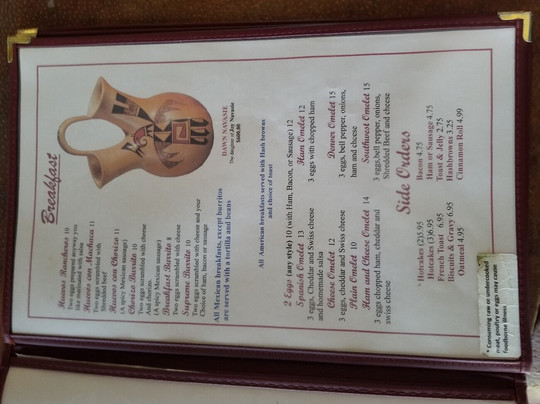 Breakfast
DAWN NAVASIE
The daughter of Joy Navasie
$600.00
Huevos Rancheros 10
Two eggs prepared anyway you
like marinated with salsa
Huevos con Machaca 11
Two eggs scrambled with
Shredded beef
Huevos con Chorizo 11
(A spicy Mexican sausage)
Chorizo Burrito 10
Two eggs scrambled with cheese
And chorizo.
(A spicy Mexican sausage)
Breakfast Burrito 8
Two eggs scrambled with cheese
Supreme Burrito 10
Two eggs scrambled with cheese and your
Choice of ham, bacon or sausage
All Mexican breakfasts, except burritos
are served with a tortilla and beans
All American breakfasts served with Hash browns
and choice of toast
2 Eggs (any style) 10 (with Ham, Bacon, or Sausage) 12
Spanish Omelet 13
3 eggs, Cheddar and Swiss cheese
and homemade salsa
Cheese Omelet 12
3 eggs, cheddar and Swiss cheese
Plain Omelet 10
Ham and Cheese Omelet 14
3 eggs chopped ham, cheddar and
swiss cheese
Ham Omelet 12
3 eggs with chopped ham
Denver Omelet 15
3 eggs, bell pepper, onions,
ham and cheese
Southwest Omelet 15
3 eggs,bell pepper, onions,
Shredded Beef and cheese
Side Orders
Hotcakes (2)5.95
Hotcakes (3)6.95
French Toast 6.95
Biscuits & Gravy 6.95
Oatmeal 4.95
Bacon 4.75
Ham or Sausage 4.75
Toast & Jelly 2.75
Hashbrowns 3.25
Cinnamon Roll 4.99
* Consuming raw or undercooked
meat, poultry or eggs may cause
foodborne illness